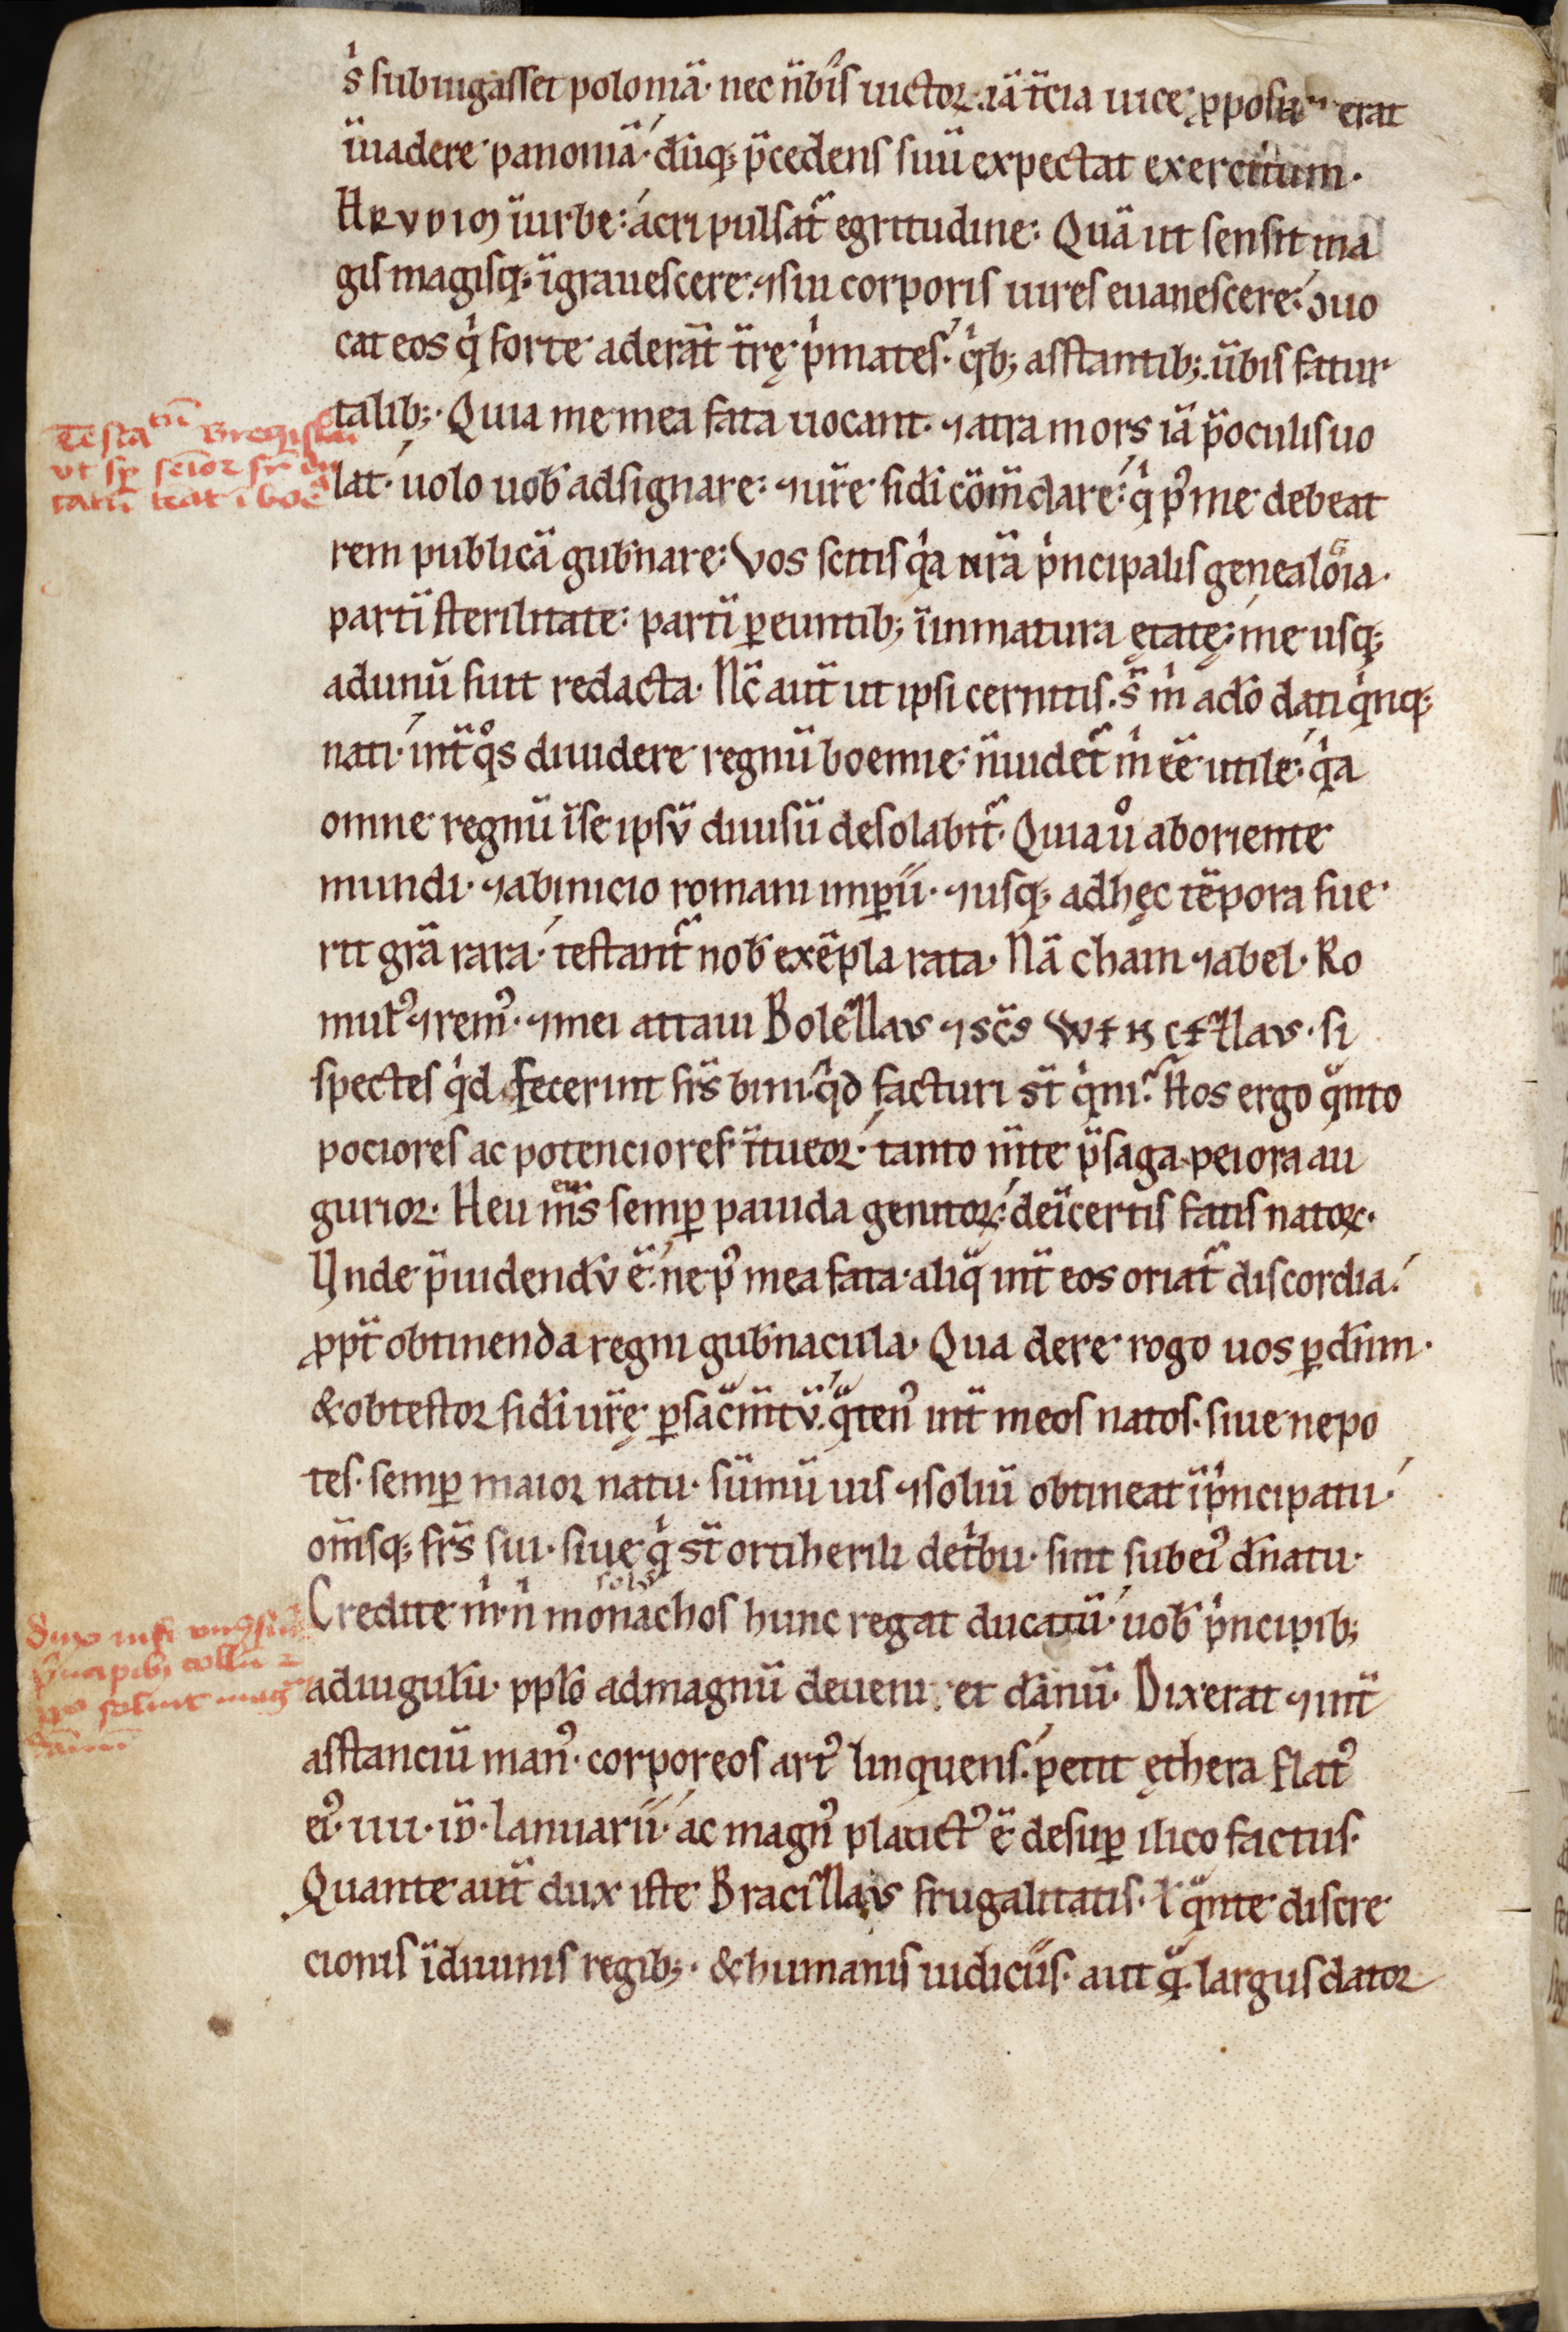 s̍ subiugasset polomā· nec nbis uictor· iā t̄cia uice· ꝓposu erat
īuadere panoniā· dūq; p̄cedens suū expectat exercitum·
HRVDIM ī urbe: acri pulsat᷑ egritudine: Quā ut sensit ma
gis magisq; īgrauescere: ⁊ sui corporis uires euanescere: ɔuo
cat eos q̍ forte aderāt t̄rę p̍mates· q̍b; asstantib; ūbis fatur
talib;· Quia me mea fata uocant· ⁊ atra mors iā p̄ oculis uo
lat· uolo uob̄ adsignare: ⁊ ur̄e fidi cōm̄dare: q̍ pꝰ me debeat
rem publicā gub̄nare: Vos scitis q̍a nr̄a p̍ncipalis genealoia·
partī sterilitate: partī ꝑeuntib; ī inmatura ętatę: me usq;
ad unū fuit redacta· Nc̄ aut̄ ut ipsi cernitis· s̄ m̍ a dō dati q̍nq;
nati· int̄ q̊s diuidere regnū boemie· n̄ uidet᷑ m̍ eē utile: q̍a
omne regnū ī se ipsū diuisū desolabit᷑· Quia ů ab oriente
mundi· ⁊ ab inicio romani imꝑii· ⁊ usq; ad hęc tēpora fue
rit gr̄a rara· testant᷑ nob̄ exēpla rata· Nā cham ⁊ abel· Ro
mulꝰ ⁊ remꝰ· ⁊ mei attaui Bolezlaus ⁊ sc̄s Wencezlaus· si
spectes q̍d fecerint fr̄s bini· q̍d facturi st̄ q̍ni? Hos ergo qnto
pociores ac potenciores ītueor· tanto m̄te p̄saga peiora au
gurior· Heu ms̄ semꝑ pauida genitoꝝ: de īcertis fatis natoꝝ·
Vnde p̄uidendū ē: ne pꝰ mea fata· aliq int̄ eos oriat᷑ discordia·
ꝓpt̄ obtinenda regni gub̄nacula· Qua de re rogo uos ꝑ dn̄m·
& obtestor fidi ur̄ę ꝑ sac̄m̄tū· qtenꝰ int̄ meos natos· siue nepo
tes· semꝑ maior natu· sūmū ius ⁊ soliū obtineat ī p̍ncipatu·
om̄sq; fr̄s sui· siue q̍ st̄ orti herili de t̍bu· sint sub eiꝰ dn̄atu·
Credite m̍· n̍ monachos hunc regat ducatū· uob̄ p̍ncipib;
ad iugulū· pplō ad magnū deueni et dānū· Dixerat ⁊ int̄
asstanciū manꝰ· corporeos artꝰ linquens· petit ęthera flatꝰ
eiꝰ· IIII· ID· Ianuarii· ac magnꝰ planctꝰ ē desuꝑ ilico factus·
Quante aut̄ dux iste Bracizlaus frugalitatis· l qnte discre
cionis ī diuinis regib;· & humanis iudiciis· aut q largus dator